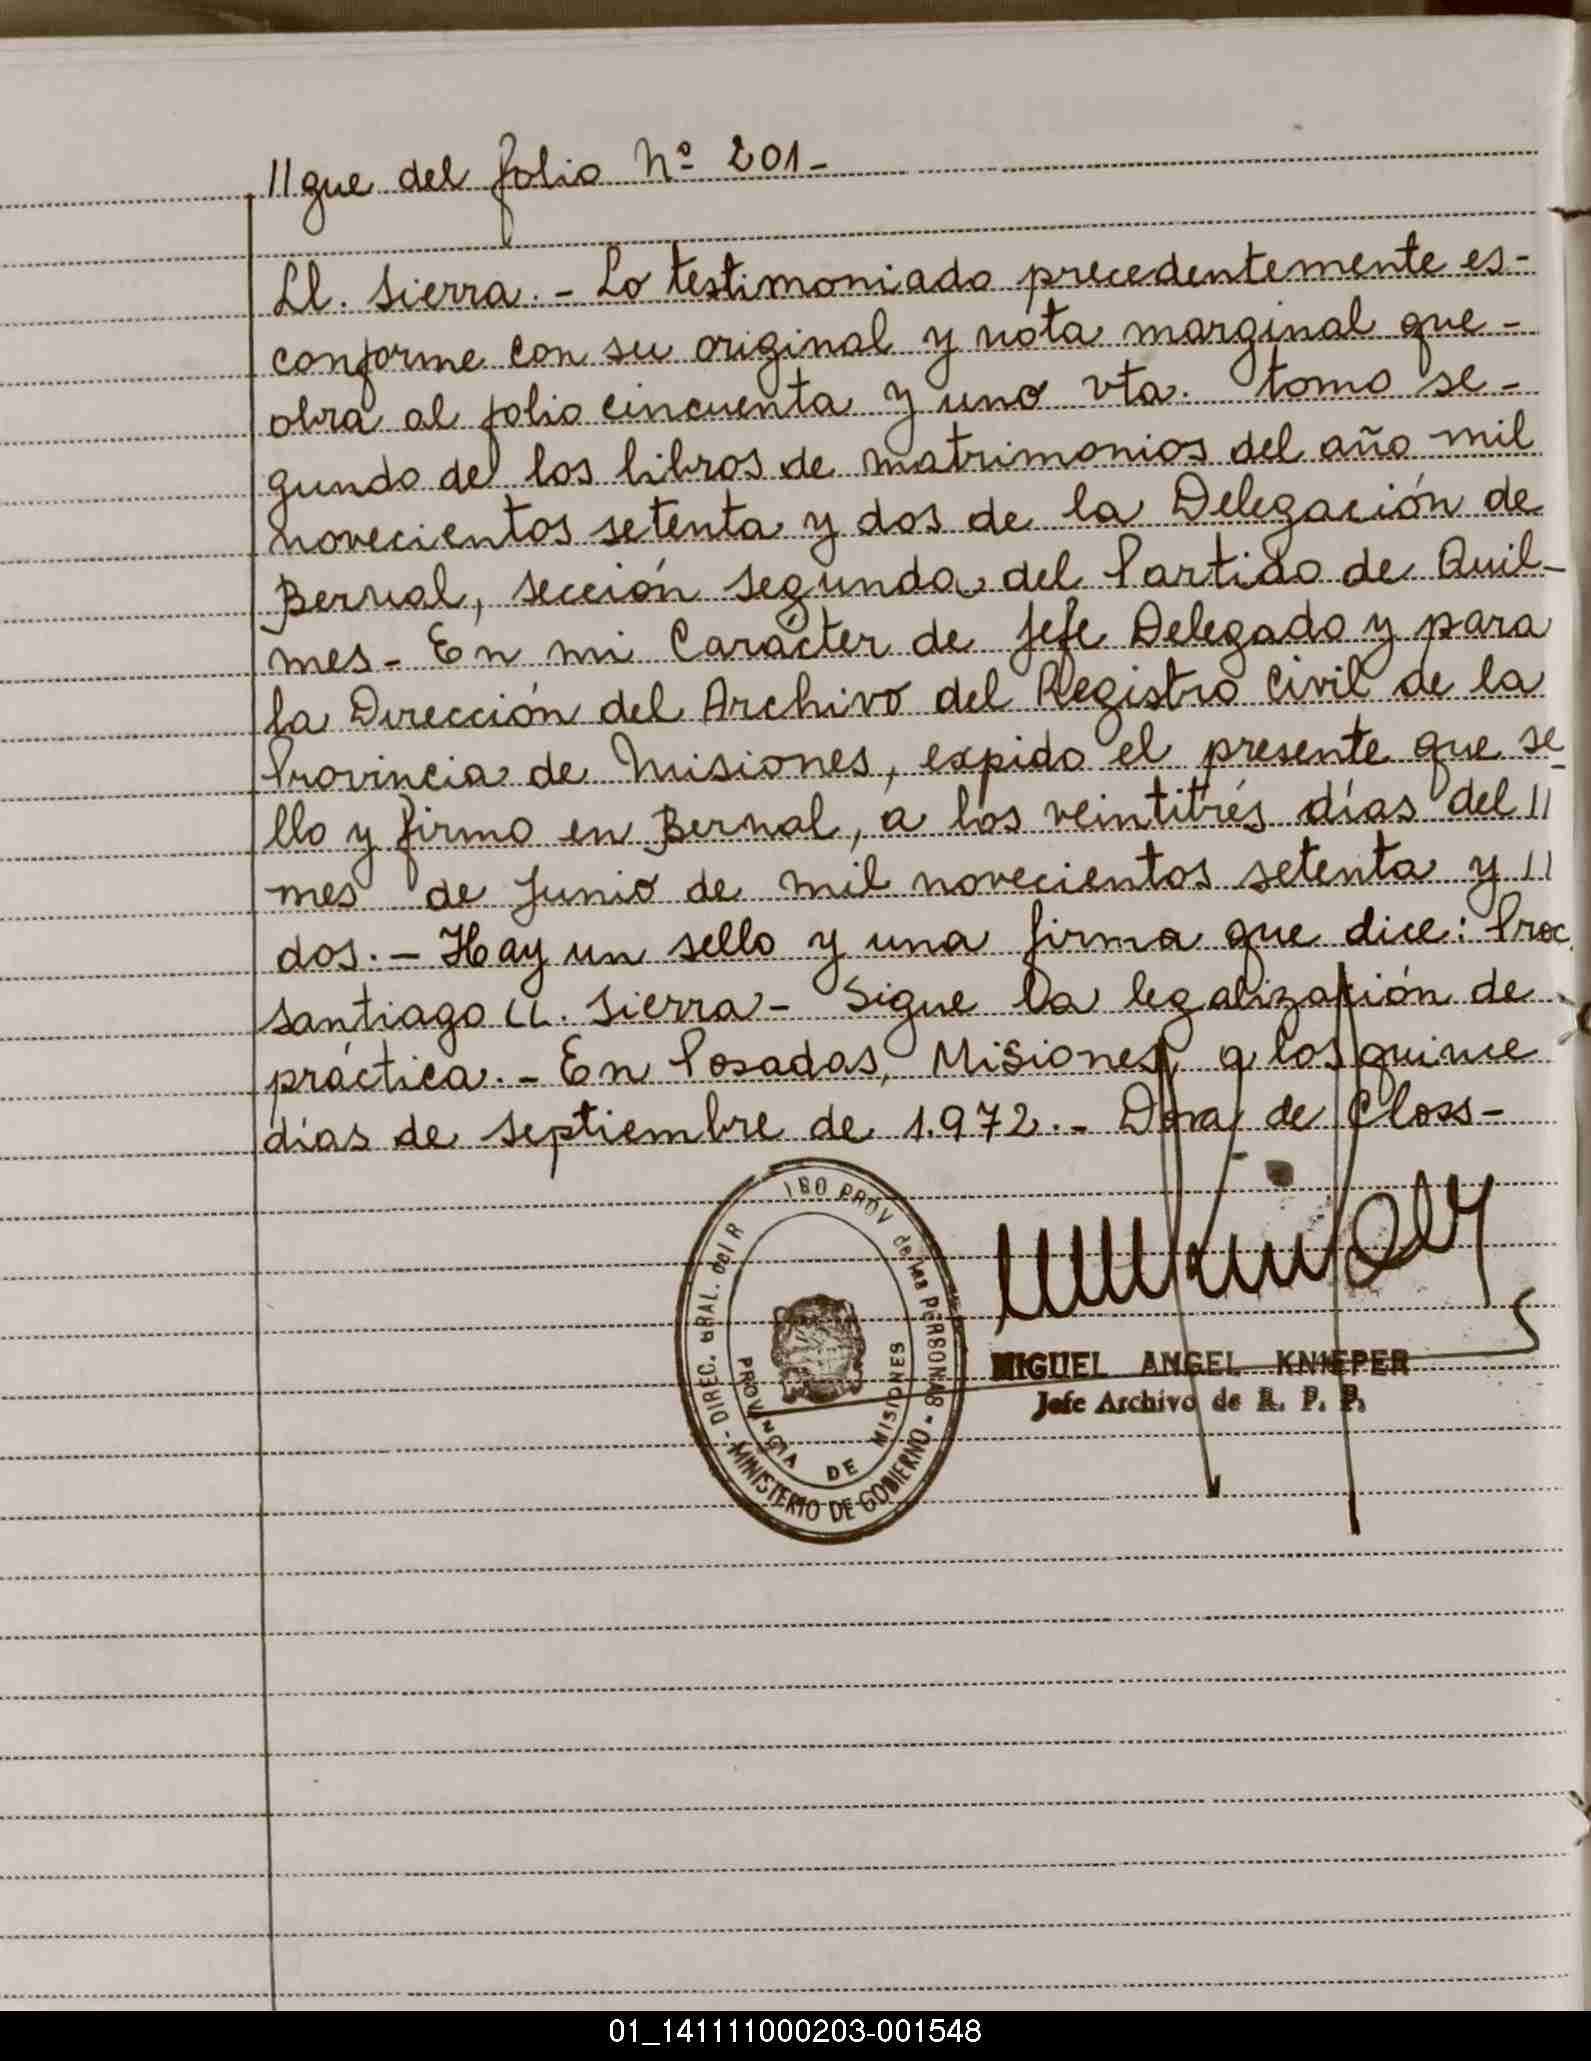 //gue del folio Nº 201-
Ll. Sierra.- Lo testimoniado precedentemente es-
conforme con su original y nota marginal que-
obra al folio cincuenta y uno vta. tomo se-
gundo de los libros de matrimonios del año mil
novecientos setenta y dos de la Delegación de
Bernal, sección segunda del Partido de Quil-
mes- En mi Carácter de Jefe Delegado y para
la Dirección del Archivo del Registro Civil de la
Provincia de Misiones, expido el presente que se
llo y firmo en Bernal, a los veintitrés días del //
mes de Junio de mil novecientos setenta y //
dos.- Hay un sello y una firma que dice: Proc.
Santiago Ll. Sierra- Sigue la legalización de
práctica.- En Posadas, Misiones, a los quince
días de septiembre de 1.972.- Dora de Closs-
- DIREC. GRAL. del R IRO PROV de las PERSONAS -
MINISTERIO DE GOBIERNO
PROVINCIA DE MISIONES
MIGUEL ANGEL KNIEPER
Jefe Archivo de R. P. P.
01_141111000203-001548